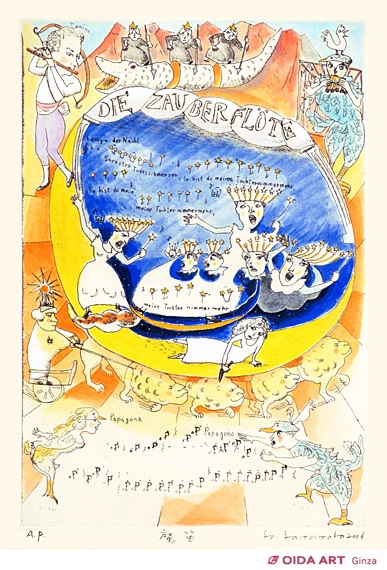 Tamino
DIE ZAUBERFLÖTE
Königin der Nacht
Sarastro Todesschmerzen, So bist du meine Tochter nimmermehr
So bist du mein
meine Tochter nimmermehr,
meine Tochter nimmermehr
Papagena
Papageno
P P P P P P
A.P.
魔笛
2006
OIDA ART Ginza